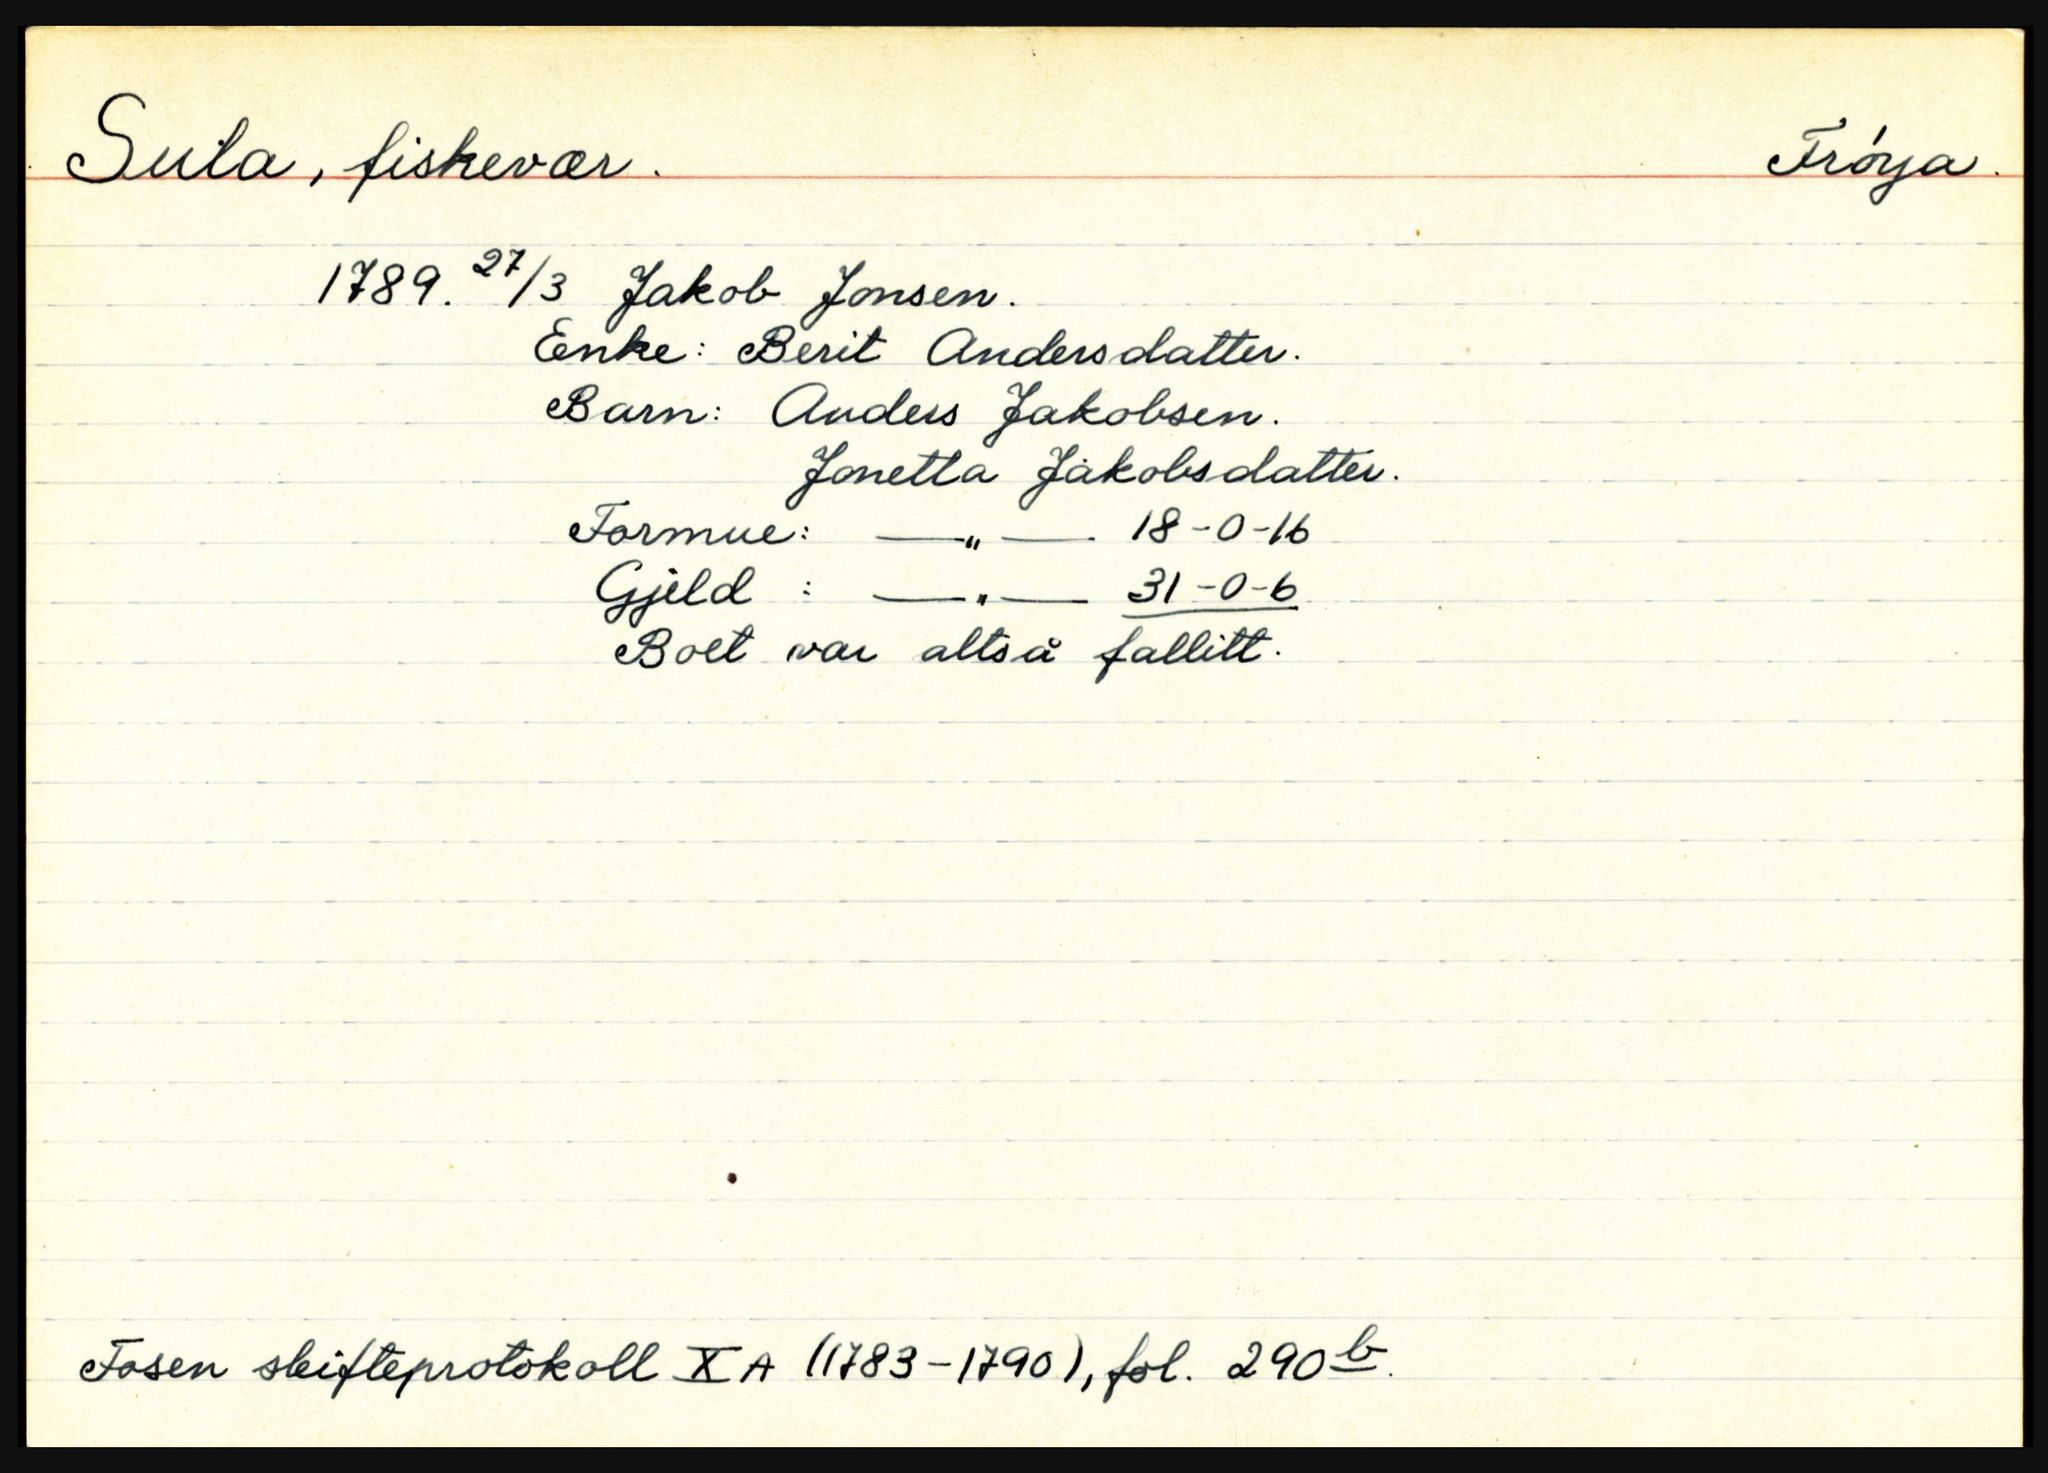 Sula, fiskevær. Frøya.
1789. 27/3 Jakob Jonsen.
Enke: Berit Andersdatter.
Barn: Anders Jakobsen.
Jonetta Jakobsdatter.
Formue: —"— 18-0-16
Gjeld : —"— 31-0-6
Boet var altså fallitt.
Fosen skifteprotokoll X A (1783-1790), fol. 290b.